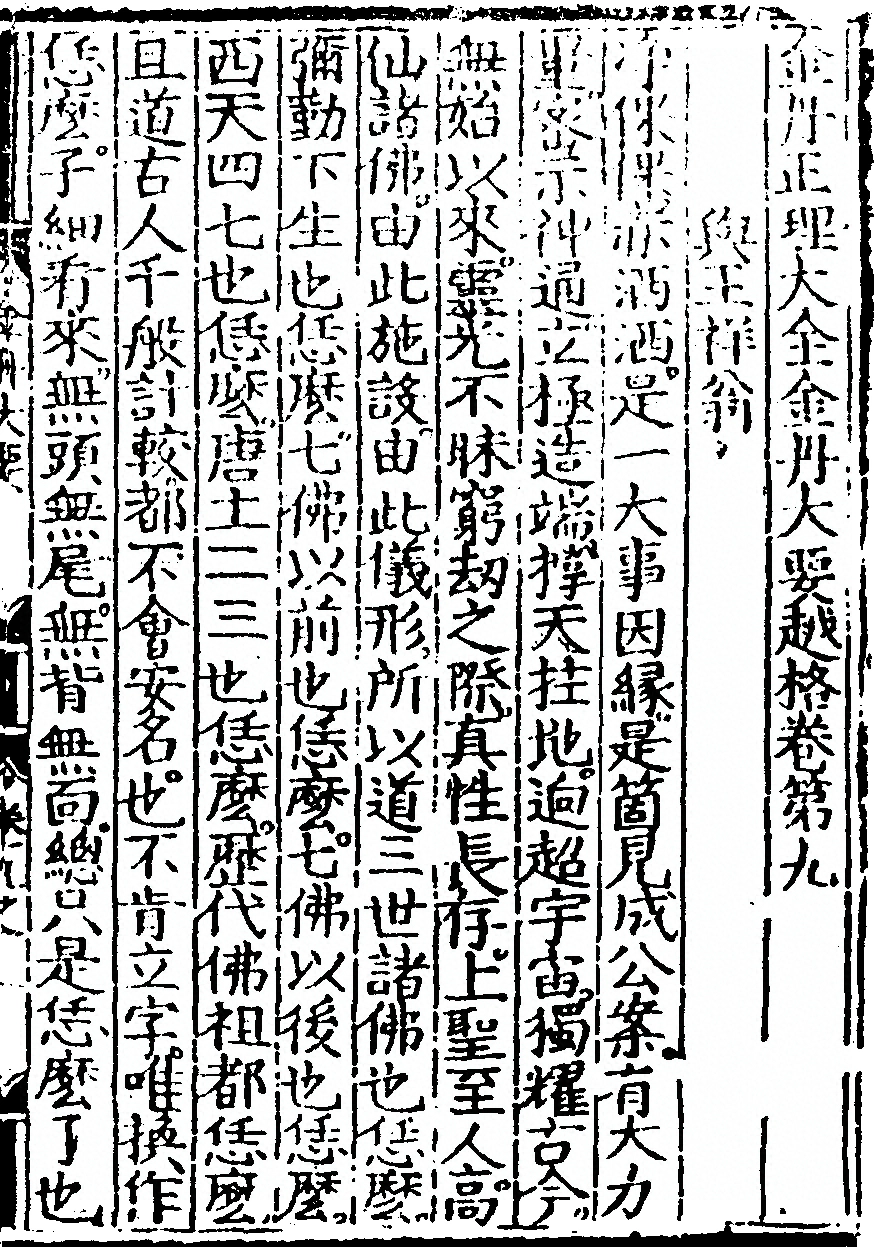 金丹正理大全金丹大要越格卷第九
與王祥翁
淨倮倮赤洒洒是一大事因縁是箇見成公案有大力
量密示神通立極造端撑天拄地逈超宇宙獨耀古今
無始以來靈光不昧窮劫之際真性長存上聖至人高
仙諸佛由此施設由此儀形所以道三世諸佛也恁麽
彌勤下生也恁麽七佛以前也恁麽七佛以後也恁麽
西天四七也恁麽唐土二三也恁麽歷代佛祖都恁麽
且道古人千般計較都不會安名也不肯立字唯換作
恁麽子細看來無頭無尾無背無面總只是恁麽了也